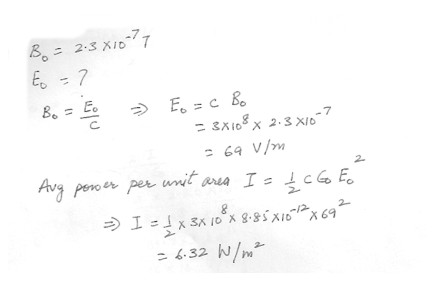 B₀ = 2.3 X10⁻⁷ T
E₀ = ?
B₀ = E₀/C ⇒ E₀ = C B₀
= 3X10⁸ X 2.3 X10⁻⁷
= 69 V/m
Avg power per unit area I = 1/2 C ϵ₀ E₀²
⇒ I = 1/2 x 3x 10⁸ x 8.85 x10⁻¹² x 69²
= 6.32 W/m²